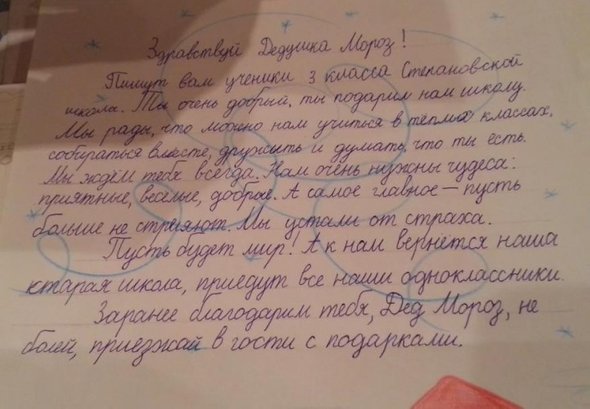 Здравствуй Дедушка Мороз!
Пишут вам ученики 3 класса Степановской
школы. Ты очень добрый, ты подарил нам школу.
Мы рады, что можно нам учиться в теплых классах,
собираться вместе, дружить и думать, что ты есть.
Мы ждём тебя всегда. Нам очень нужны чудеса:
приятные, веселые, добрые. А самое главное – пусть
больше не стреляют. Мы устали от страха.
Пусть будет мир! А к нам вернётся наша
старая школа, приедут все наши одноклассники.
Заранее благодарим тебя, Дед Мороз, не
болей, приезжай в гости с подарками.